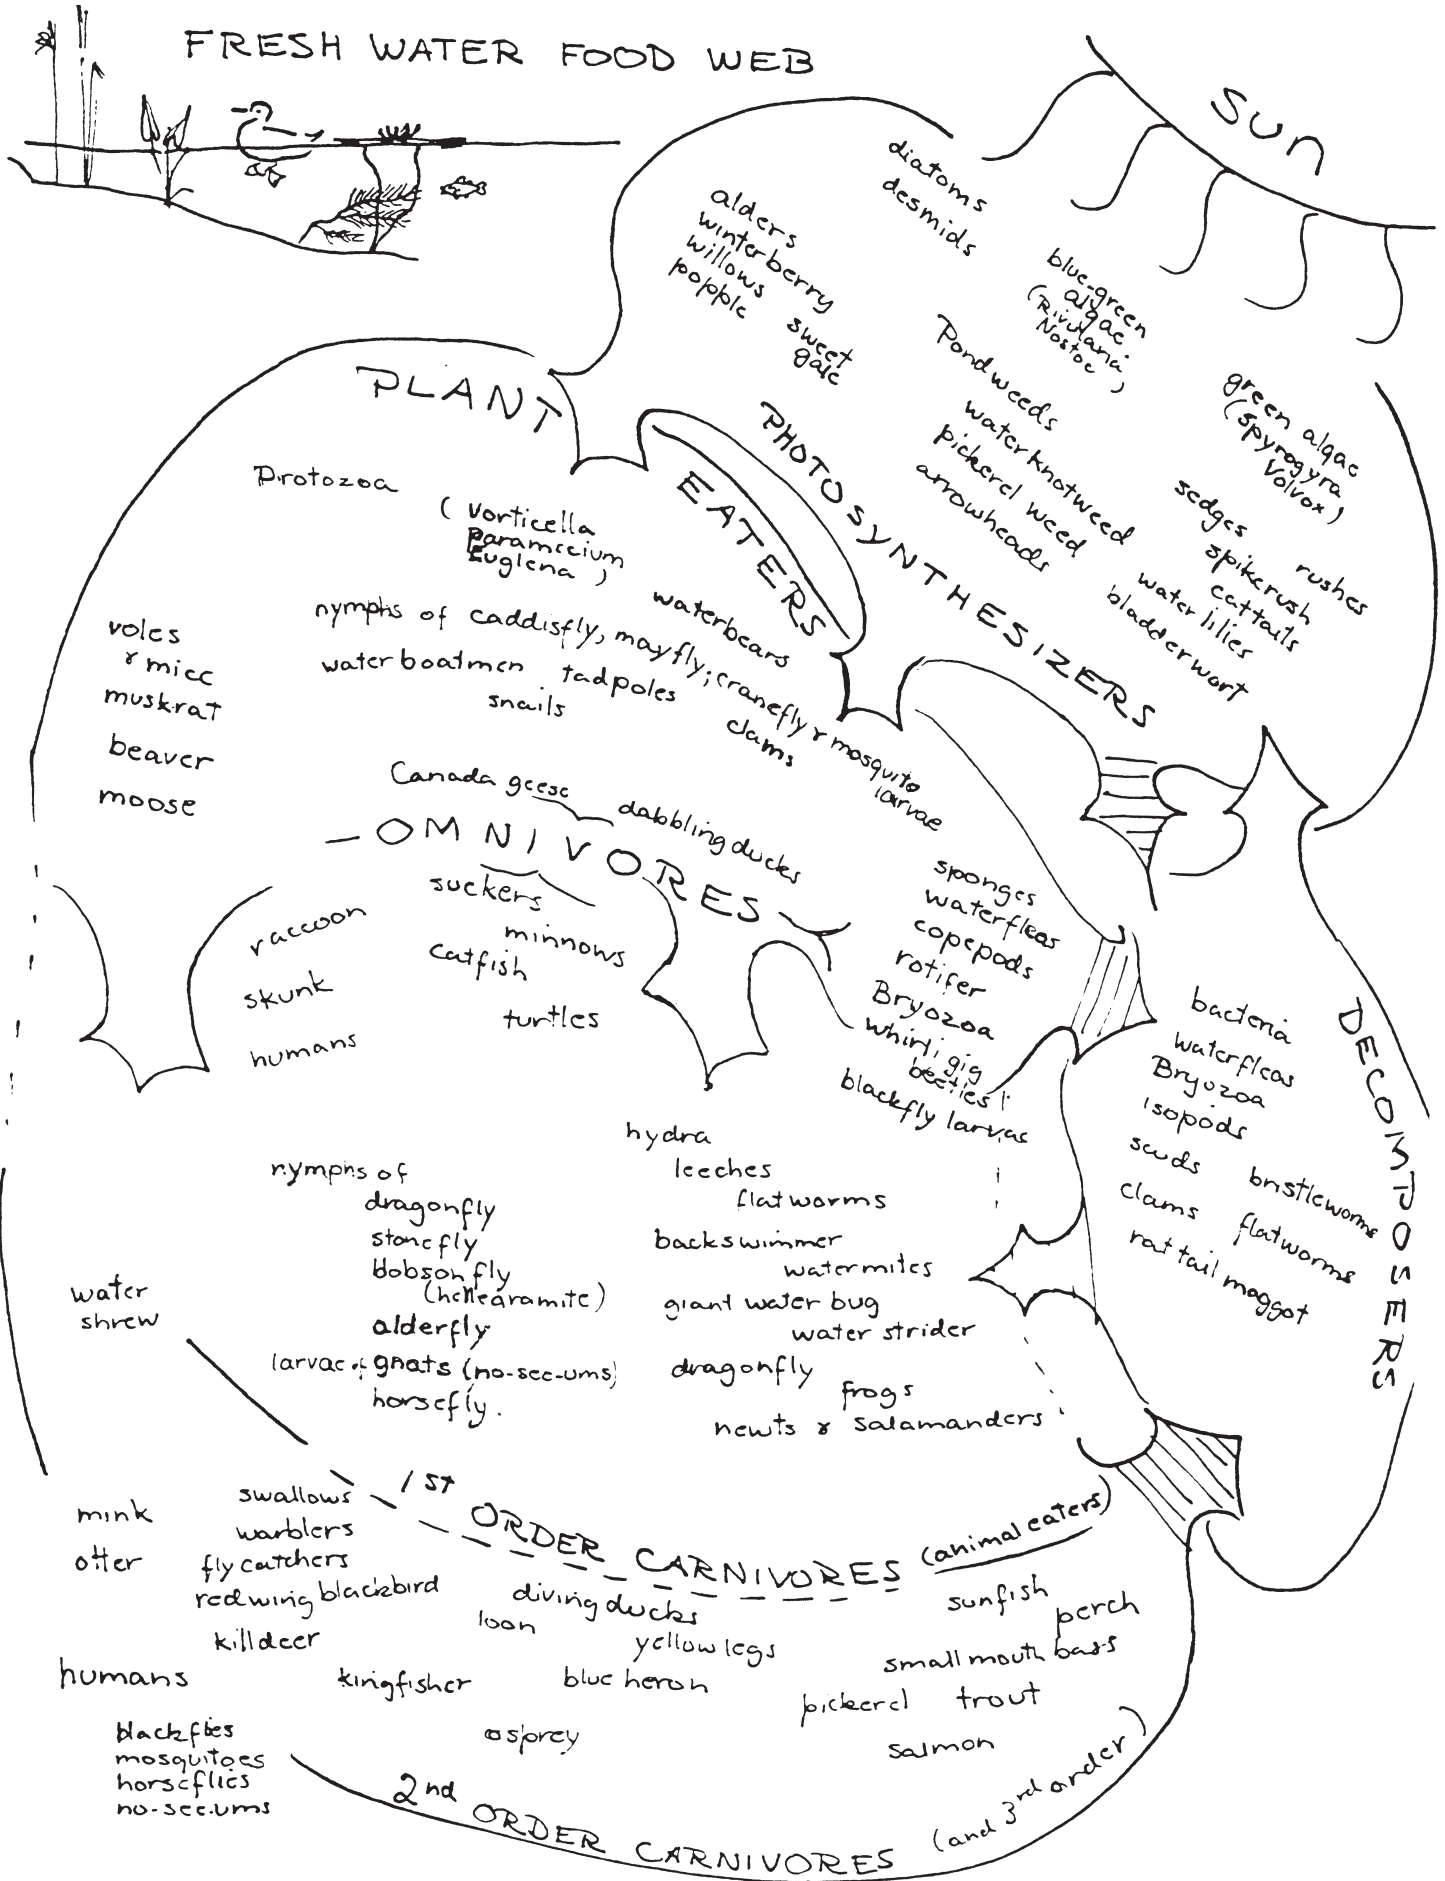 FRESH WATER FOOD WEB
Sun
diatoms
desmids
alders
winterberry
willows
popple
sweet
gale
blue-green
algae
(Rivularia,
Nostoc)
Pondweeds
water knotweed
pickerel weed
arrowheads
green algae
(spyrogyra
Volvox)
sedges
rushes
spikerush
cattails
water lilies
bladderwort
PHOTOSYNTHESIZERS
PLANT
EATERS
Protozoa
(Vorticella
Paramecium
Euglena)
waterbears
nymphs of caddisfly, mayfly; cranefly & mosquito
larvae
water boatmen
tadpoles
snails
clams
voles
& mice
muskrat
beaver
moose
Canada geese
dabbling ducks
OMNIVORES
suckers
minnows
catfish
turtles
raccoon
skunk
humans
sponges
waterfleas
copepods
rotifer
Bryozoa
whirligig
beetles
blackfly larvae
DECOMPOSERS
bacteria
waterfleas
Bryozoa
isopods
scuds
bristleworms
clams
flatworms
rat tail maggot
hydra
leeches
flatworms
backswimmer
watermites
giant water bug
water strider
dragonfly
frogs
newts & salamanders
nymphs of
dragonfly
stonefly
dobsonfly
alderfly
larvae of gnats (no-see-ums)
horsefly.
water
shrew
1ST ORDER CARNIVORES (animal eaters)
mink
otter
swallows
warblers
flycatchers
redwing blackbird
killdeer
diving ducks
loon
yellowlegs
kingfisher
blue heron
osprey
sunfish
perch
smallmouth bass
pickerel
trout
salmon
humans
blackflies
mosquitoes
horseflies
no-see-ums
2nd ORDER CARNIVORES (and 3rd order)